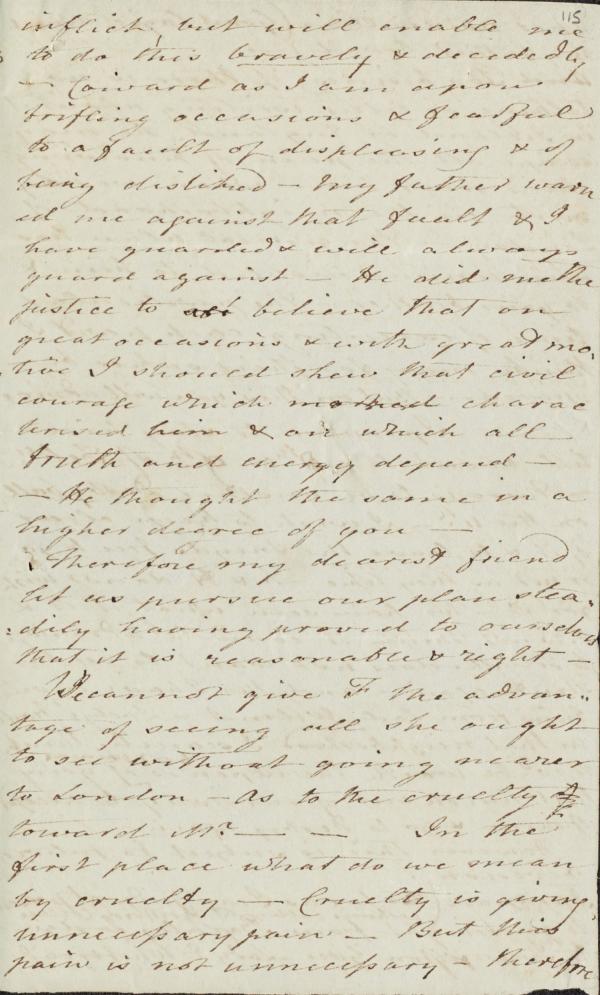 115
inflict, but will enable me
to do this bravely & decidedly
— Coward as I am upon
trifling occasions & fearful
to a fault of displeasing & of
being disliked — My father warn
ed me against that fault & I
have guarded & will always
guard against — He did me the
justice to believe that on
great occasions & with great mo-
tive I should shew that civil
courage which marked charac
terised him & on which all
truth and energy depend —
— He thought the same in a
higher degree of you —
Therefore my dearest friend
let us pursue our plan stea=
=dily having proved to ourselves
that it is reasonable & right —
We cannot give F the advan=
tage of seeing all she ought
to see without going nearer
to London — As to the cruelty
toward Mr. — — In the
first place what do we mean
by cruelty — Cruelty is giving
unnecessary pain — But this
pain is not unnecessary — therefore